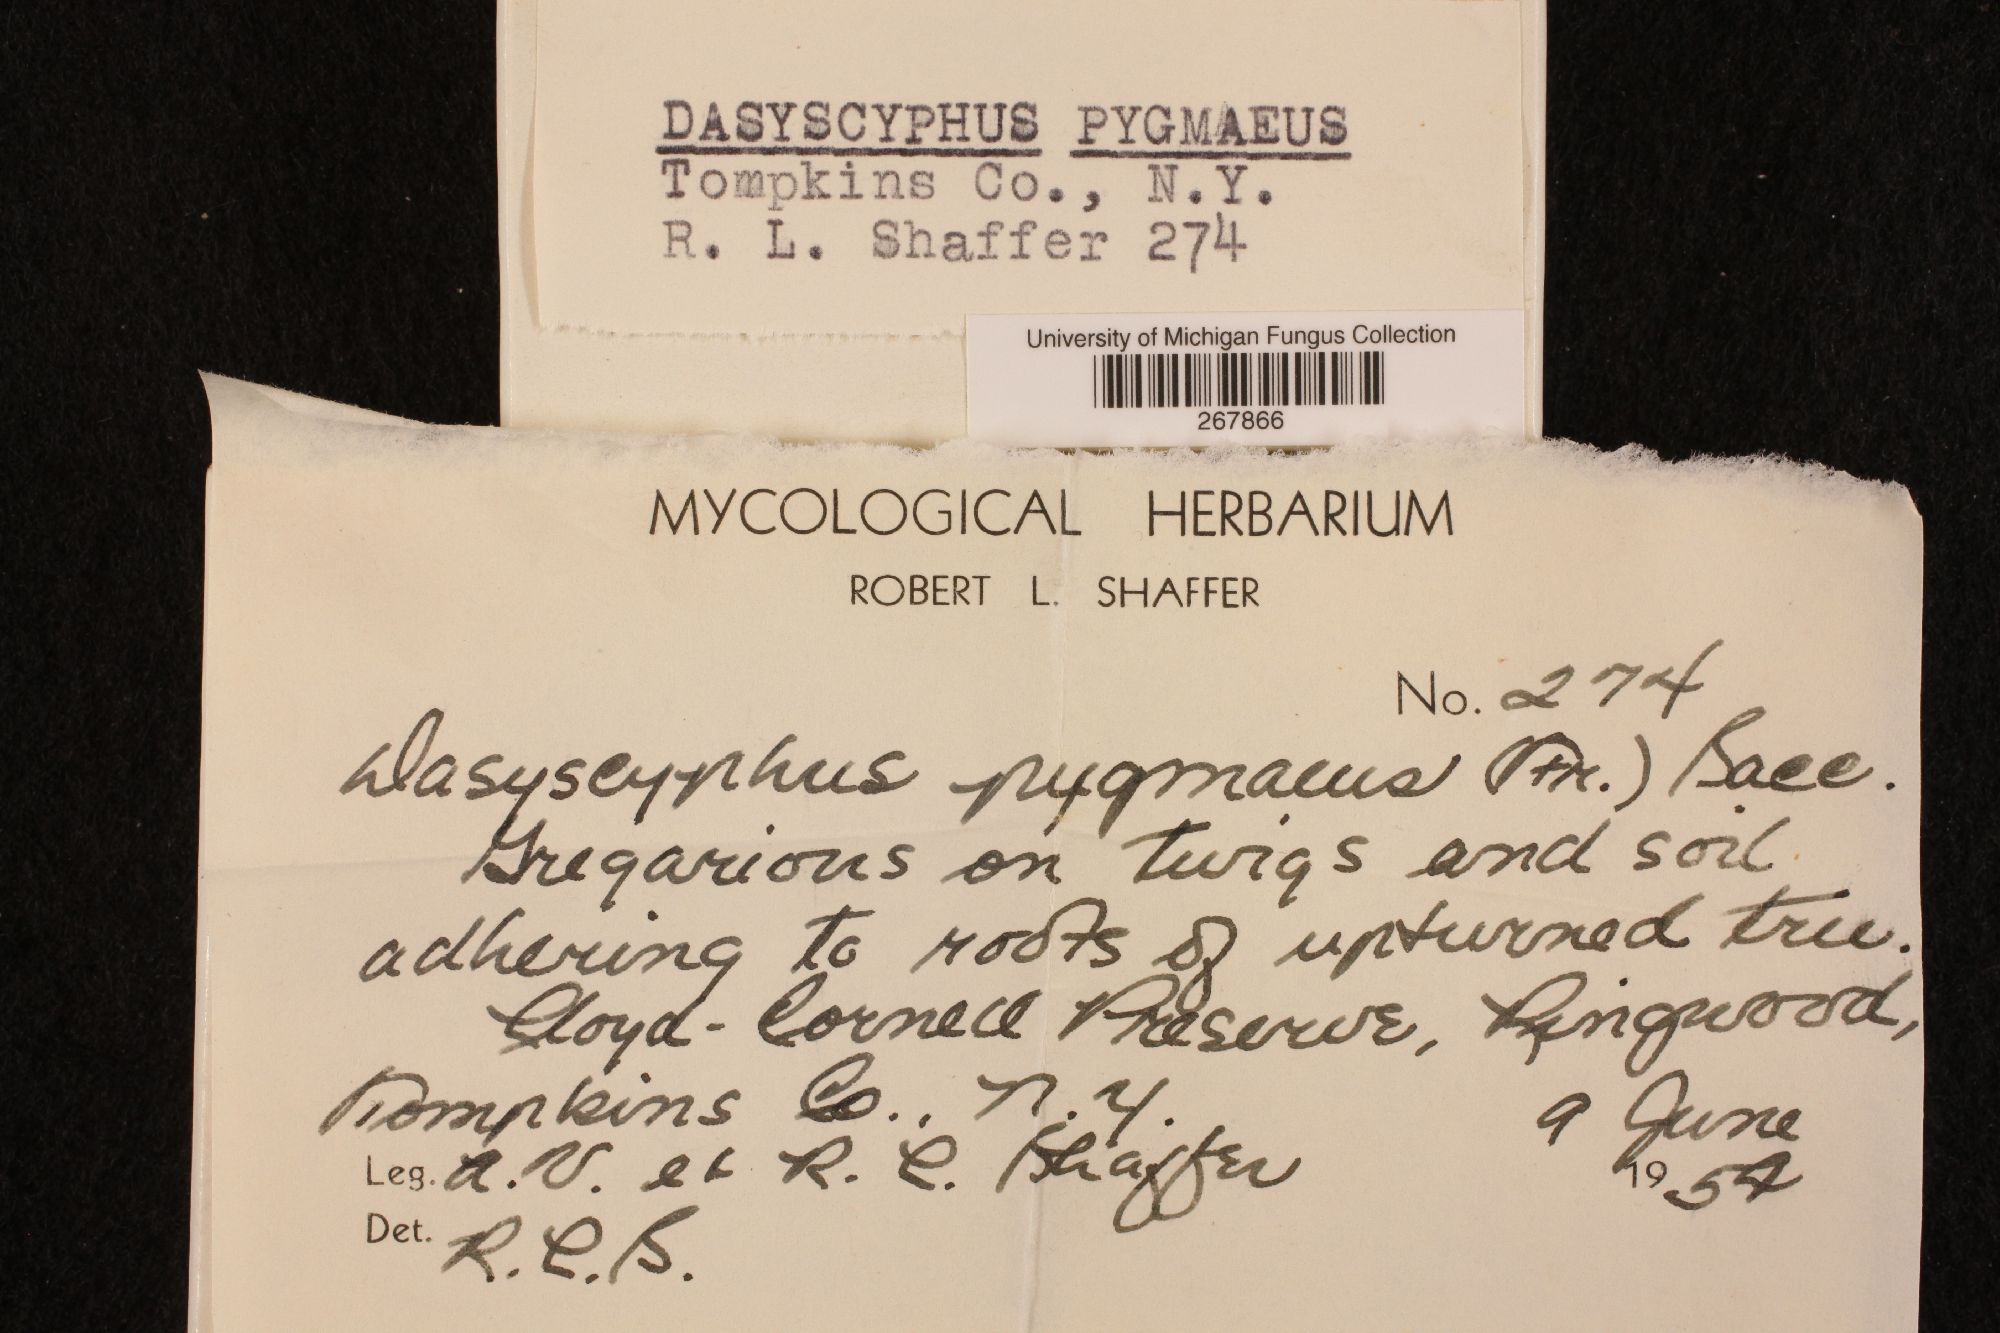 DASYSCYPHUS PYGMAEUS
Tompkins Co., N.Y.
R. L. Shaffer 274
University of Michigan Fungus Collection
267866
MYCOLOGICAL HERBARIUM
ROBERT L. SHAFFER
No. 274
Dasyscyphus pygmaeus (Fr.) Sacc.
Gregarious on twigs and soil
adhering to roots of upturned tree.
Lloyd-Cornell Preserve, Ringwood,
Tompkins Co., N.Y. 9 June
Leg. A.V. et R. L. Shaffer 1954
Det. R.L.S.